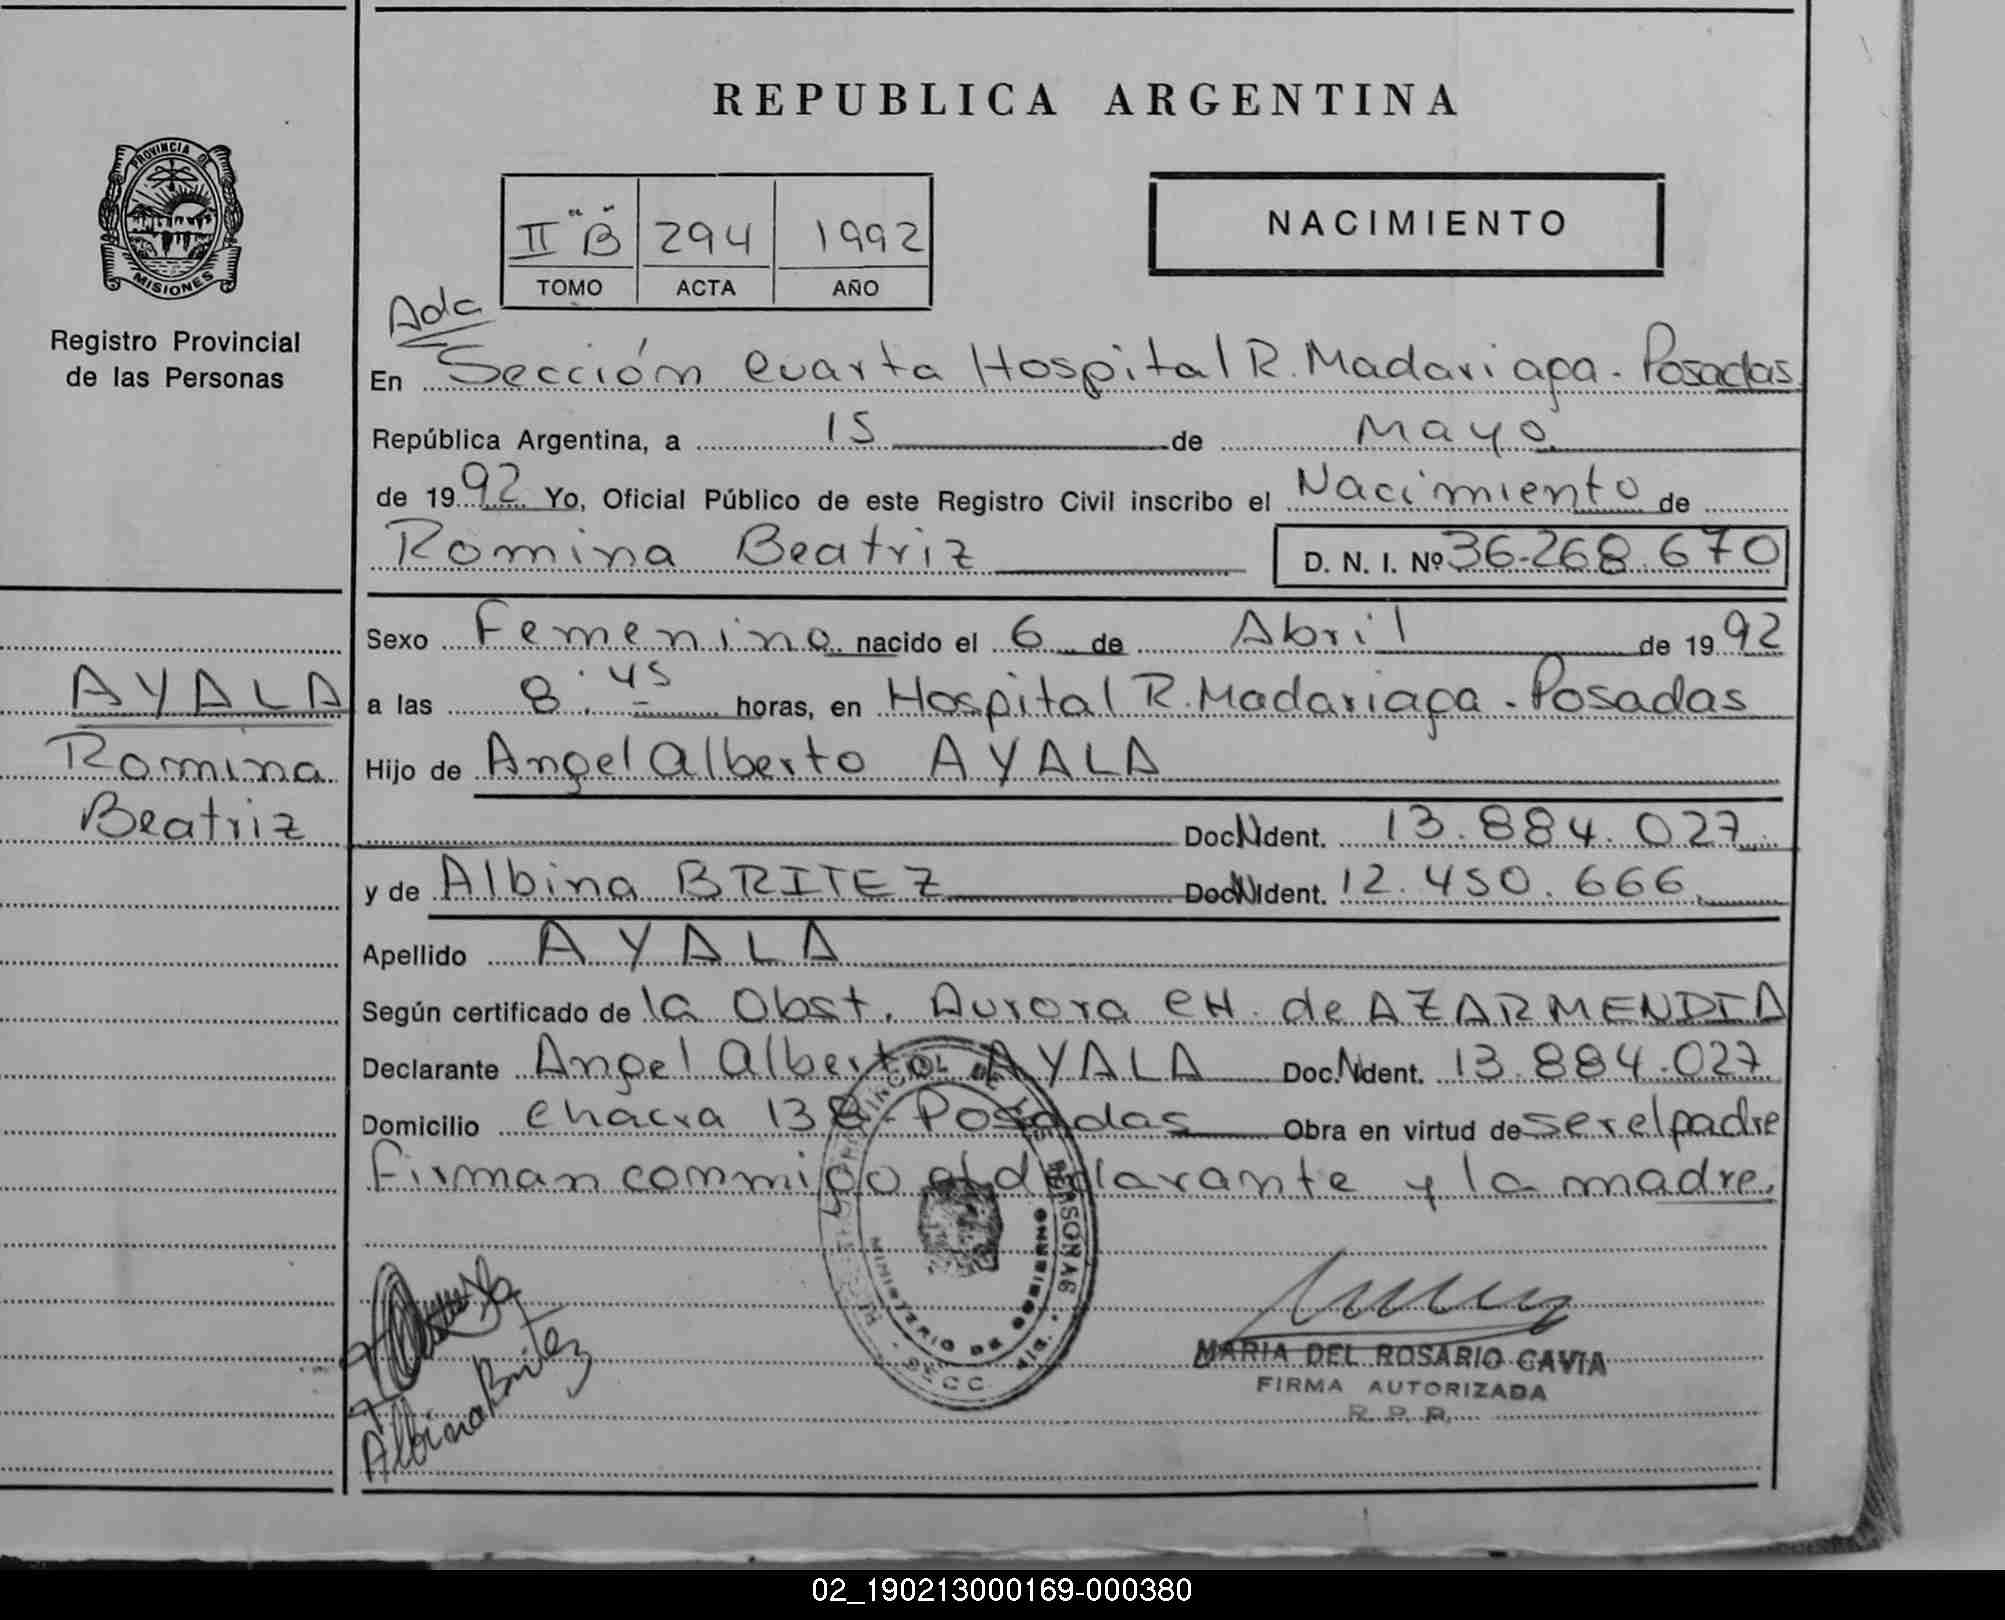 REPUBLICA ARGENTINA
PROVINCIA DE
MISIONES
Registro Provincial
de las Personas
II "B" 294 1992
TOMO ACTA AÑO
NACIMIENTO
Ada
En Sección Cuarta Hospital R. Madariaga - Posadas
República Argentina, a 15 de Mayo
de 1992 Yo, Oficial Público de este Registro Civil inscribo el Nacimiento de
Romina Beatriz D. N. I. Nº 36.268.670
Sexo Femenino nacido el 6 de Abril de 1992
AYALA
Romina
Beatriz
a las 8:45 horas, en Hospital R. Madariaga - Posadas
Hijo de Angel Alberto AYALA
Doc. Ident. 13.884.027
y de Albina BRITEZ Doc. Ident. 12.450.666
Apellido AYALA
Según certificado de la Obst. Aurora CH. de AZARMENDIA
Declarante Angel Alberto AYALA Doc. Ident. 13.884.027
Domicilio Chacra 138 - Posadas Obra en virtud de ser el padre
Firman conmigo el declarante y la madre.
MINISTERIO DE GOBIERNO
Albina Britez
MARIA DEL ROSARIO CAVIA
FIRMA AUTORIZADA
R. P. P.
02_190213000169-000380